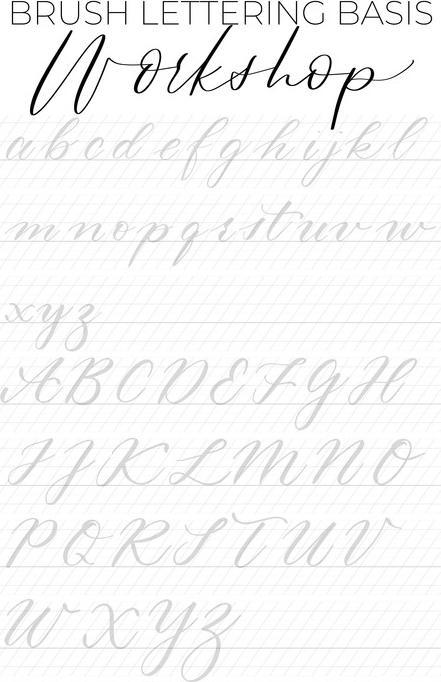 BRUSH LETTERING BASIS
Workshop
a b c d e f g h i j k l
m n o p q r s t u v w
x y z
A B C D E F G H
I J K L M N O
P Q R S T U V
W X Y Z